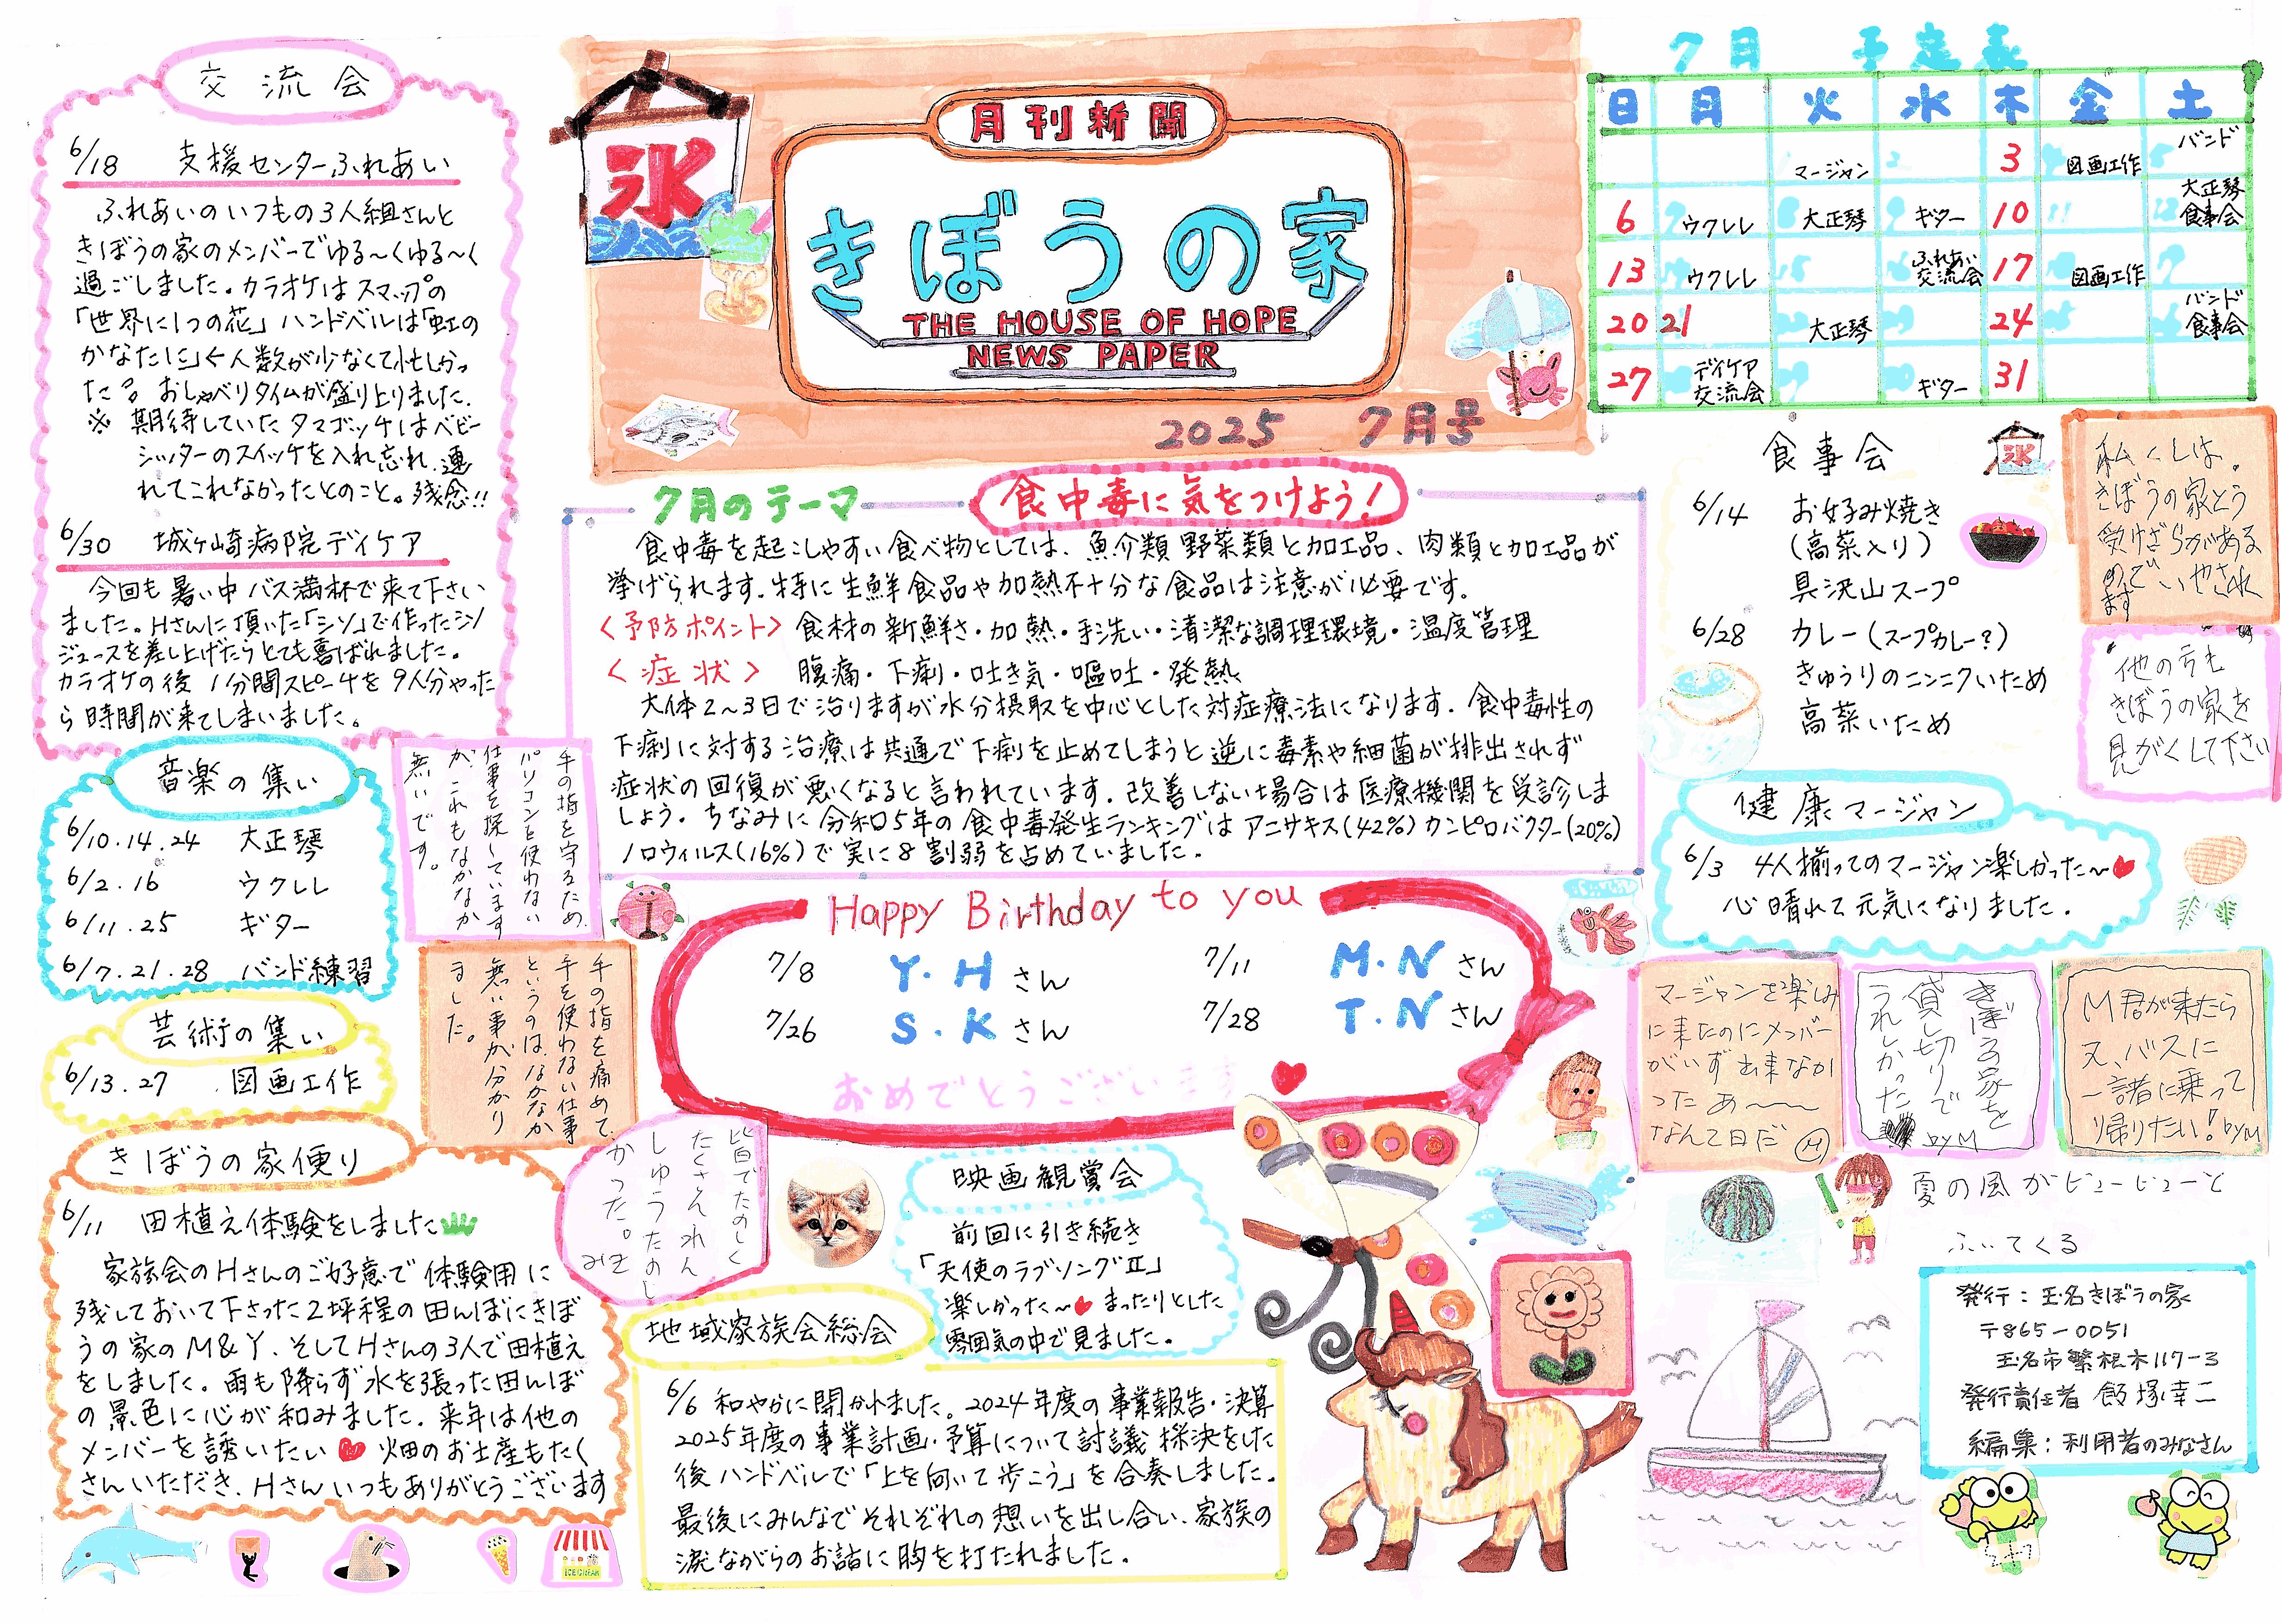 月刊新聞
きぼうの家
THE HOUSE OF HOPE
NEWS PAPER
2025 7月号
交流会
6/18 支援センターふれあい
ふれあいのいつもの3人組さんと
きぼうの家のメンバーでゆる〜くゆる〜く
過ごしました。カラオケはスマップの
「世界に1つの花」ハンドベルは「虹の
かなたに」←人数が少なくて忙しかっ
た? おしゃべりタイムが盛り上りました。
※ 期待していたタマゴッチはベビー
シッターのスイッチを入れ忘れ、連
れてこれなかったとのこと。残念!!
6/30 城ヶ崎病院デイケア
今回も暑い中バス満杯で来て下さい
ました。Hさんに頂いた「シソ」で作ったシソ
ジュースを差し上げたらとても喜ばれました。
カラオケの後 1分間スピーチを9人分やった
ら時間が来てしまいました。
音楽の集い
6/10.14.24 大正琴
6/2.16 ウクレレ
6/11.25 ギター
6/7.21.28 バンド練習
芸術の集い
6/13.27 図画工作
手の指を守るため、
パソコンを使わない
仕事を探しています
が、これもなかなか
無いです。
手の指を痛めて、
手を使わない仕事
というのは、なかなか
無い事が分かり
ました。
きぼうの家便り
6/11 田植え体験をしました
家族会のHさんのご好意で体験用に
残しておいて下さった2坪程の田んぼにきぼ
うの家のM&Y、そしてHさんの3人で田植え
をしました。雨も降らず水を張った田んぼ
の景色に心が和みました。来年は他の
メンバーを誘いたい 畑のお土産もたく
さんいただき、Hさんいつもありがとうございます
氷
7月のテーマ
食中毒に気をつけよう!
食中毒を起こしやすい食べ物としては、魚介類 野菜類と加工品、肉類と加工品が
挙げられます。特に生鮮食品や加熱不十分な食品は注意が必要です。
<予防ポイント> 食材の新鮮さ・加熱・手洗い・清潔な調理環境・温度管理
<症状> 腹痛・下痢・吐き気・嘔吐・発熱
大体2〜3日で治りますが水分摂取を中心とした対症療法になります。食中毒性の
下痢に対する治療は共通で下痢を止めてしまうと逆に毒素や細菌が排出されず
症状の回復が悪くなると言われています。改善しない場合は医療機関を受診しま
しょう。ちなみに令和5年の食中毒発生ランキングはアニサキス(42%)カンピロバクター(20%)
ノロウィルス(16%)で実に8割弱を占めていました。
Happy Birthday to you
7/8 Y.Hさん
7/11 M.Nさん
7/26 S.Kさん
7/28 T.Nさん
おめでとうございます
皆でたのしく
たくさんれん
しゅうたのし
かった。
みき
映画観賞会
前回に引き続き
「天使のラブソングⅡ」
楽しかった〜 まったりとした
雰囲気の中で見ました。
地域家族会総会
6/6 和やかに開かれました。2024年度の事業報告・決算
2025年度の事業計画・予算について討議 採決をした
後ハンドベルで「上を向いて歩こう」を合奏しました。
最後にみんなでそれぞれの想いを出し合い、家族の
涙ながらのお話に胸を打たれました。
ICE CREAM
7月 予定表
日 月 火 水 木 金 土
マージャン 3 図画工作 バンド
6 ウクレレ 大正琴 ギター 10 大正琴
食事会
13 ウクレレ ふれあい
交流会 17 図画工作
20 21 大正琴 24 バンド
食事会
27 デイケア
交流会 ギター 31
食事会
6/14 お好み焼き
(高菜入り)
具沢山スープ
6/28 カレー(スープカレー?)
きゅうりのニンニクいため
高菜いため
氷
私くしは、
きぼうの家とう
受けざらがある
のでいやされ
ます
他の方も
きぼうの家を
見がくして下さい
健康マージャン
6/3 4人揃ってのマージャン楽しかった〜
心晴れて元気になりました。
マージャンを楽しみ
に来たのにメンバー
がいず出来なか
ったあ〜〜
なんて日だ M
きぼうの家を
貸し切りで
うれしかった
by M
M君が来たら
又、バスに
一諸に乗って
り帰りたい! by M
夏の風がビュービューと
ふいてくる
発行:玉名きぼうの家
〒865-0051
玉名市繁根木117-3
発行責任者 飯塚幸二
編集:利用者のみなさん